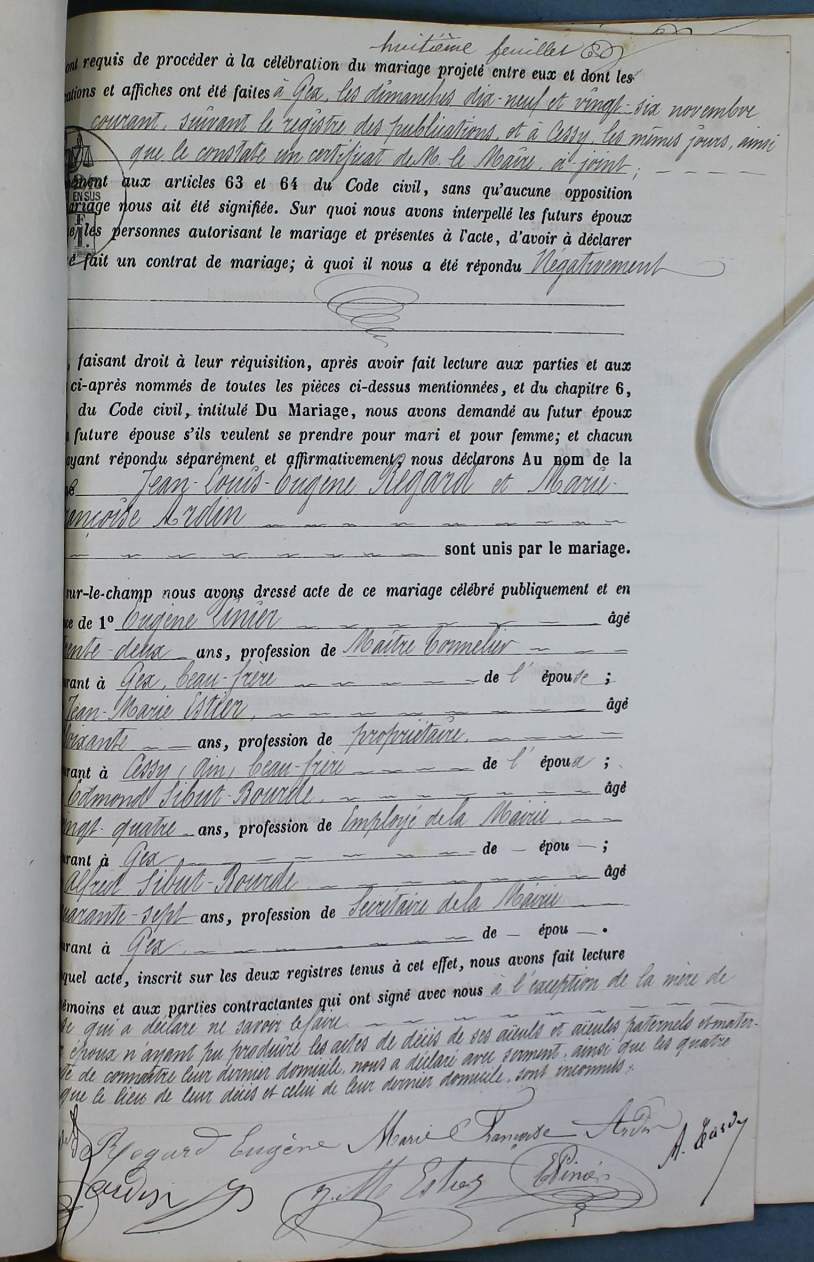 huitième feuillet
ont requis de procéder à la célébration du mariage projeté entre eux et dont les
ations et affiches ont été faites à Gex, les dimanches dix-neuf et vingt-six novembre
courant, suivant le registre des publications et à Cessy, les mêmes jours, ainsi
que le constate un certificat de M. le Maire, ci joint;
ément aux articles 63 et 64 du Code civil, sans qu'aucune opposition
ariage nous ait été signifiée. Sur quoi nous avons interpellé les futurs époux
e les personnes autorisant le mariage et présentes à l'acte, d'avoir à déclarer
é fait un contrat de mariage; à quoi il nous a été répondu Négativement
faisant droit à leur réquisition, après avoir fait lecture aux parties et aux
ci-après nommés de toutes les pièces ci-dessus mentionnées, et du chapitre 6,
du Code civil, intitulé Du Mariage, nous avons demandé au futur époux
future épouse s'ils veulent se prendre pour mari et pour femme; et chacun
ayant répondu séparément et affirmativement, nous déclarons Au nom de la
Jean-Louis-Eugène Regard et Marie-
ançoise Ardin
sont unis par le mariage.
sur-le-champ nous avons dressé acte de ce mariage célébré publiquement et en
ce de 1º Eugène âgé
ente-deux ans, profession de Maître Tonnelier
urant à Gex, beau-frère de l'épouse;
Jean-Marie Estier, âgé
oixante ans, profession de propriétaire,
urant à Cessy (Ain) beau-frère de l'époux;
Edmond Sibut-Bourde, âgé
ingt-quatre ans, profession de Employé de la Mairie
urant à Gex de — épou —;
Alfred Sibut-Bourde âgé
uarante-sept ans, profession de Secrétaire de la Mairie
urant à Gex, de — épou —.
quel acte, inscrit sur les deux registres tenus à cet effet, nous avons fait lecture
émoins et aux parties contractantes qui ont signé avec nous à l'exception de la mère de
qui a déclaré ne savoir le faire
époux n'ayant pu produire les actes de décès de ses aïeuls et aïeules paternels et mater-
de connaître leur dernier domicile, nous a déclaré avec serment, ainsi que les quatre
que le lieu de leur décès et celui de leur dernier domicile, sont inconnus.
Regard Eugène Marie Françoise Ardin
Ardin J. M Estier